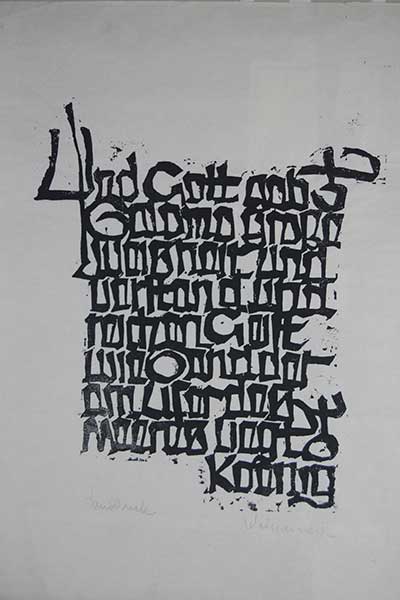 Und Gott gab
Salomo große
Weisheit und
Verstand und
reichen Geist
wie Sand der
am Ufer des
Meeres liegt
Handdruck